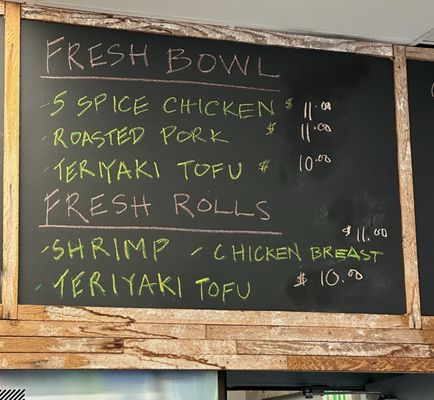 FRESH BOWL
- 5 SPICE CHICKEN $ 11.00
- ROASTED PORK $ 11.00
- TERIYAKI TOFU $ 10.00
FRESH ROLLS
$ 11.00
- SHRIMP - CHICKEN BREAST
- TERIYAKI TOFU $ 10.00